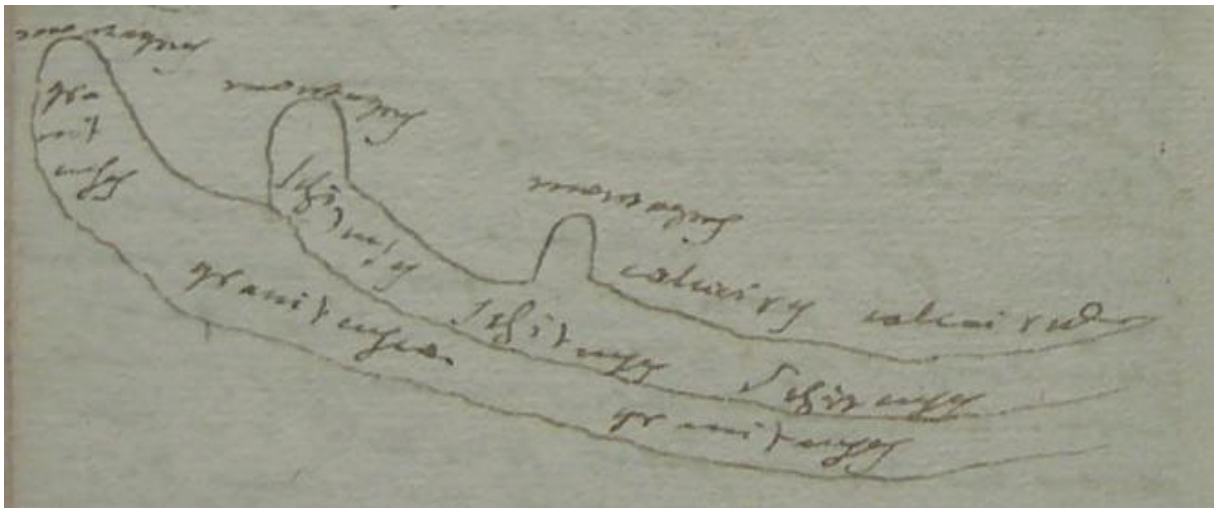 montagnes
gra
nit
euses
montagnes
Schiteuses
montagnes
calcaires calcaires
graniteuses
Schiteuses
Schiteuses
graniteuses